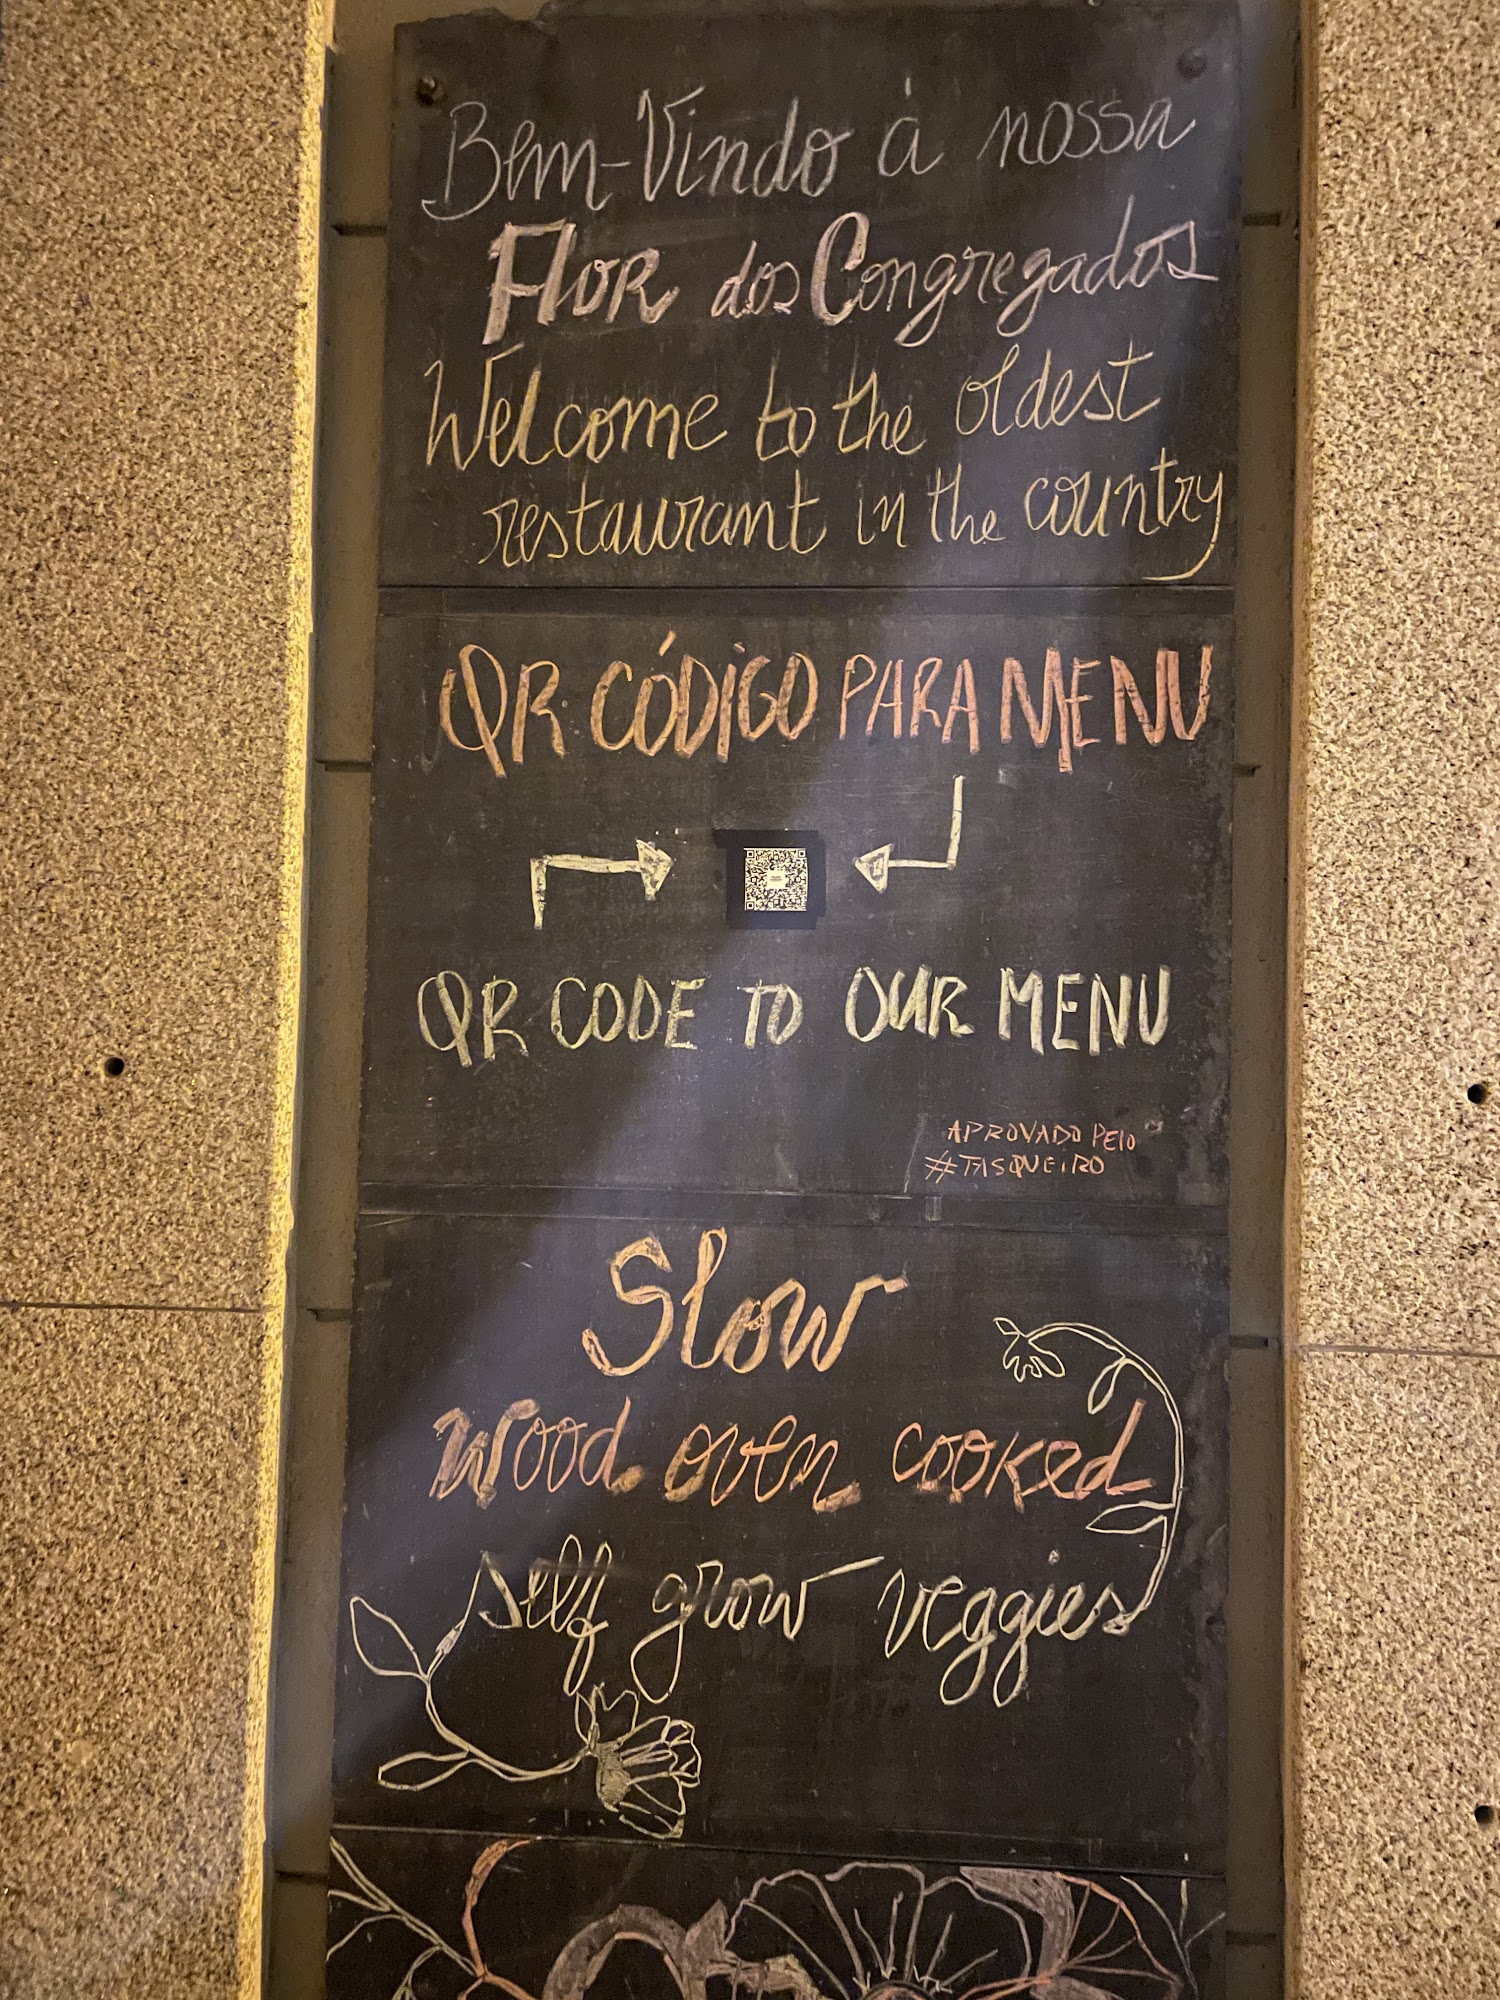 Bem-Vindo à nossa
Flor dos Congregados
Welcome to the oldest
restaurant in the country
QR CÓDIGO PARA MENU
QR CODE TO OUR MENU
APROVADO PElO
#TASQUEIRO
Slow
Wood oven cooked
self grow veggies